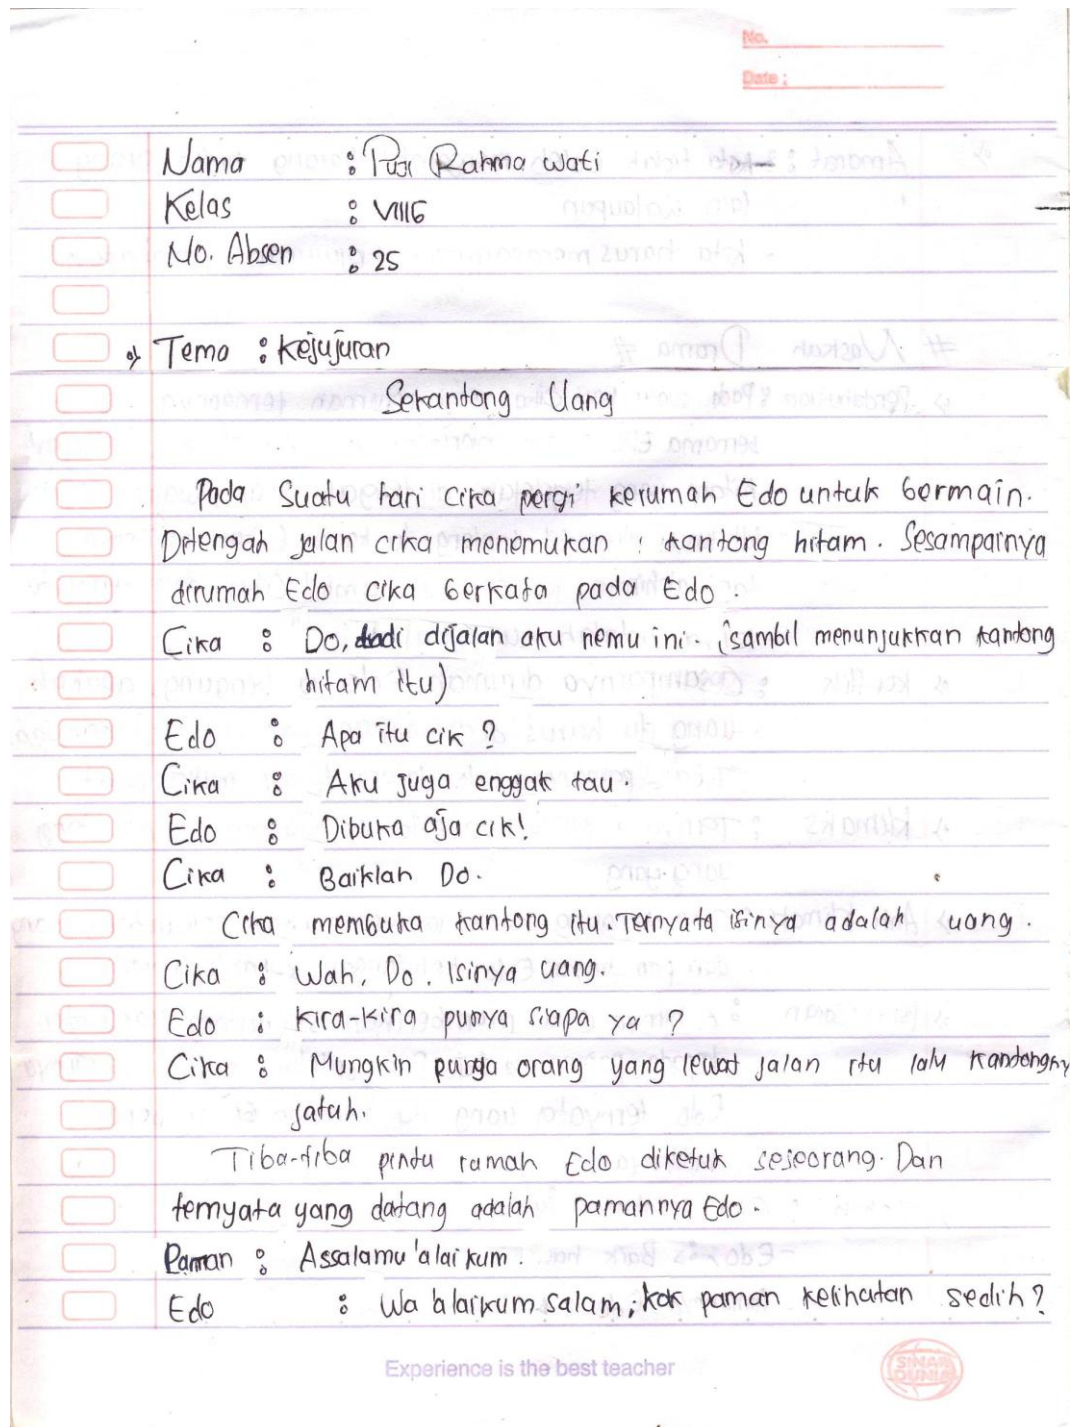 No.
Date :
Nama : Puji Rahma Wati
Kelas : VIIIG
No. Absen : 25
Tema : Kejujuran
Sekantong Uang
Pada suatu hari Cika pergi kerumah Edo untuk bermain.
Ditengah jalan cika menemukan kantong hitam. Sesampainya
dirumah Edo Cika berkata pada Edo.
Cika : Do, tadi dijalan aku nemu ini. (sambil menunjukkan kantong
hitam itu)
Edo : Apa itu cik ?
Cika : Aku juga enggak tau.
Edo : Dibuka aja cik!
Cika : Baiklah Do.
Cika membuka kantong itu. Ternyata isinya adalah uang.
Cika : Wah, Do. Isinya uang.
Edo : Kira-kira punya siapa ya ?
Cika : Mungkin punya orang yang lewat jalan itu lalu kantongny
jatuh.
Tiba-tiba pintu rumah Edo diketuk seseorang. Dan
ternyata yang datang adalah pamannya Edo.
Paman : Assalamu'alaikum.
Edo : Wa'alaikum salam, kok paman kelihatan sedih?
Experience is the best teacher
SINAR
DUNIA